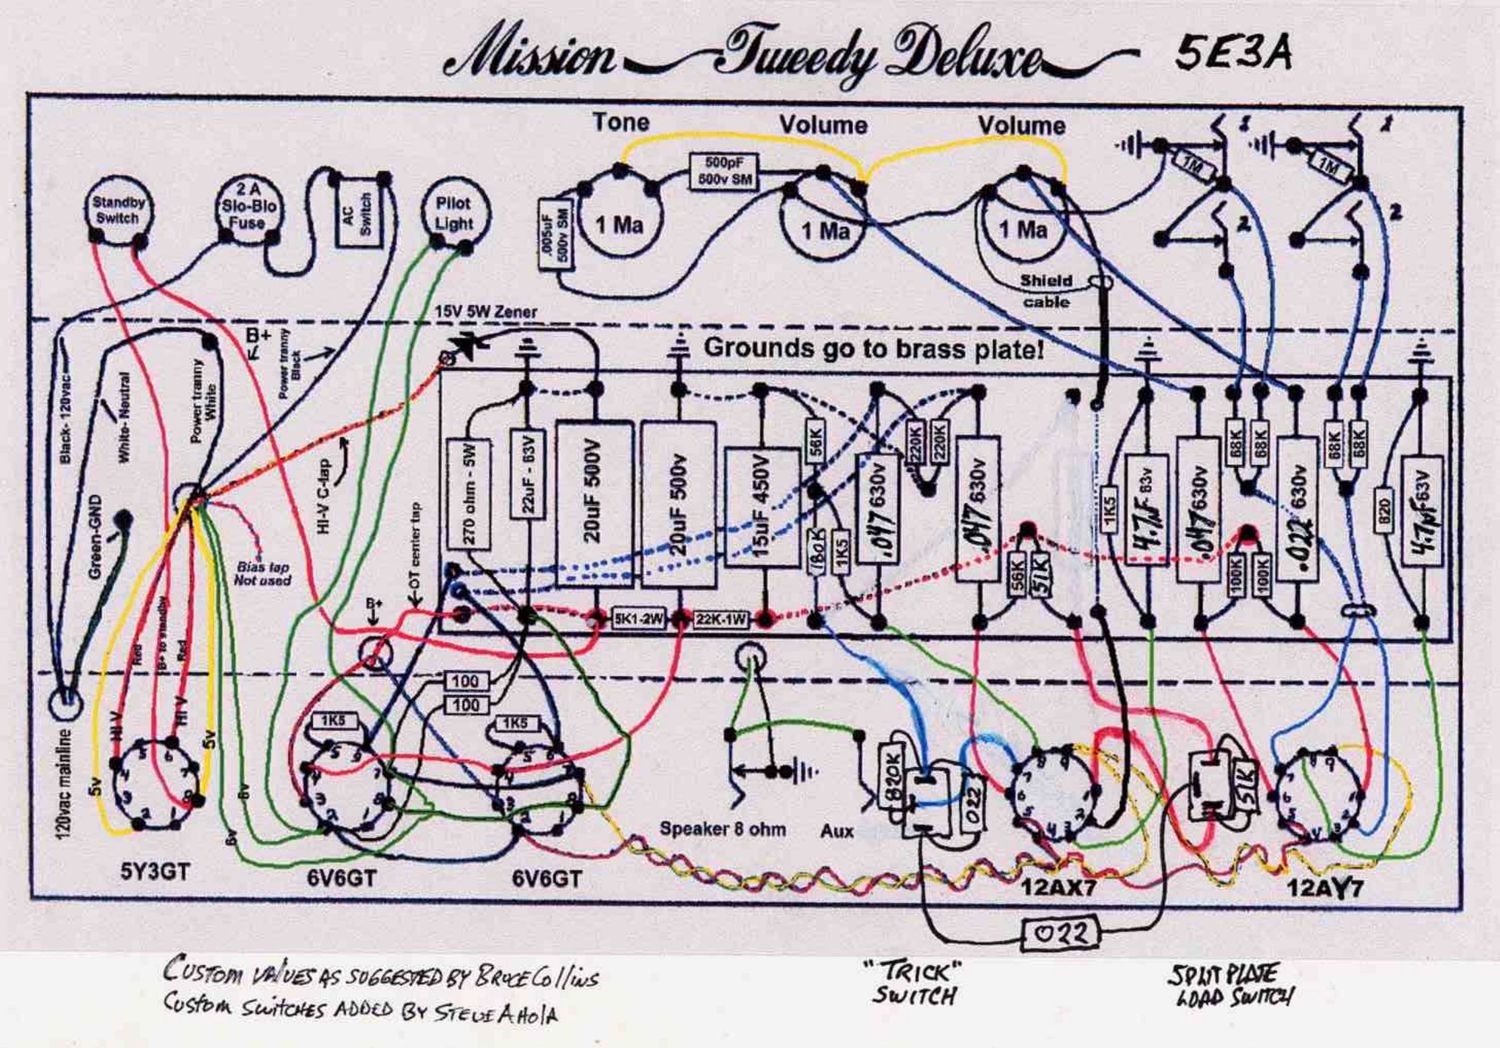 Mission Tweedy Deluxe 5E3A
Tone
Volume
Volume
1
1
Standby
Switch
2 A
Slo-Blo
Fuse
AC
Switch
Pilot
Light
500pF
500v SM
.005uF
500v SM
1 Ma
1 Ma
1 Ma
1M
1M
2
2
Shield
cable
15V 5W Zener
B+
Power tranny
Black
Grounds go to brass plate!
Black- 120vac
White- Neutral
Power tranny
White
Green-GND
HI-V C-tap
OT center tap
Bias tap
Not used
270 ohm - 5W
22uF - 63V
20uF 500V
20uF 500v
15uF 450V
56K
180K
1K5
.047 630v
220K
220K
.047 630v
56K
51K
1K5
4.7µF 63v
.047 630v
68K
68K
100K
100K
.022 630v
68K
68K
820
4.7µF 63V
B+
5K1-2W
22K-1W
Red
B+ to standby
Red
HI V
HI V
5v
5v
6v
6v
100
100
1K5
1K5
120vac mainline
Speaker 8 ohm
Aux
820K
022
51K
5Y3GT
6V6GT
6V6GT
12AX7
12AY7
022
CUSTOM VALUES AS SUGGESTED BY BRUCE COLLINS
CUSTOM SWITCHES ADDED BY STEVE AHOLA
"TRICK"
SWITCH
SPLIT PLATE
LOAD SWITCH